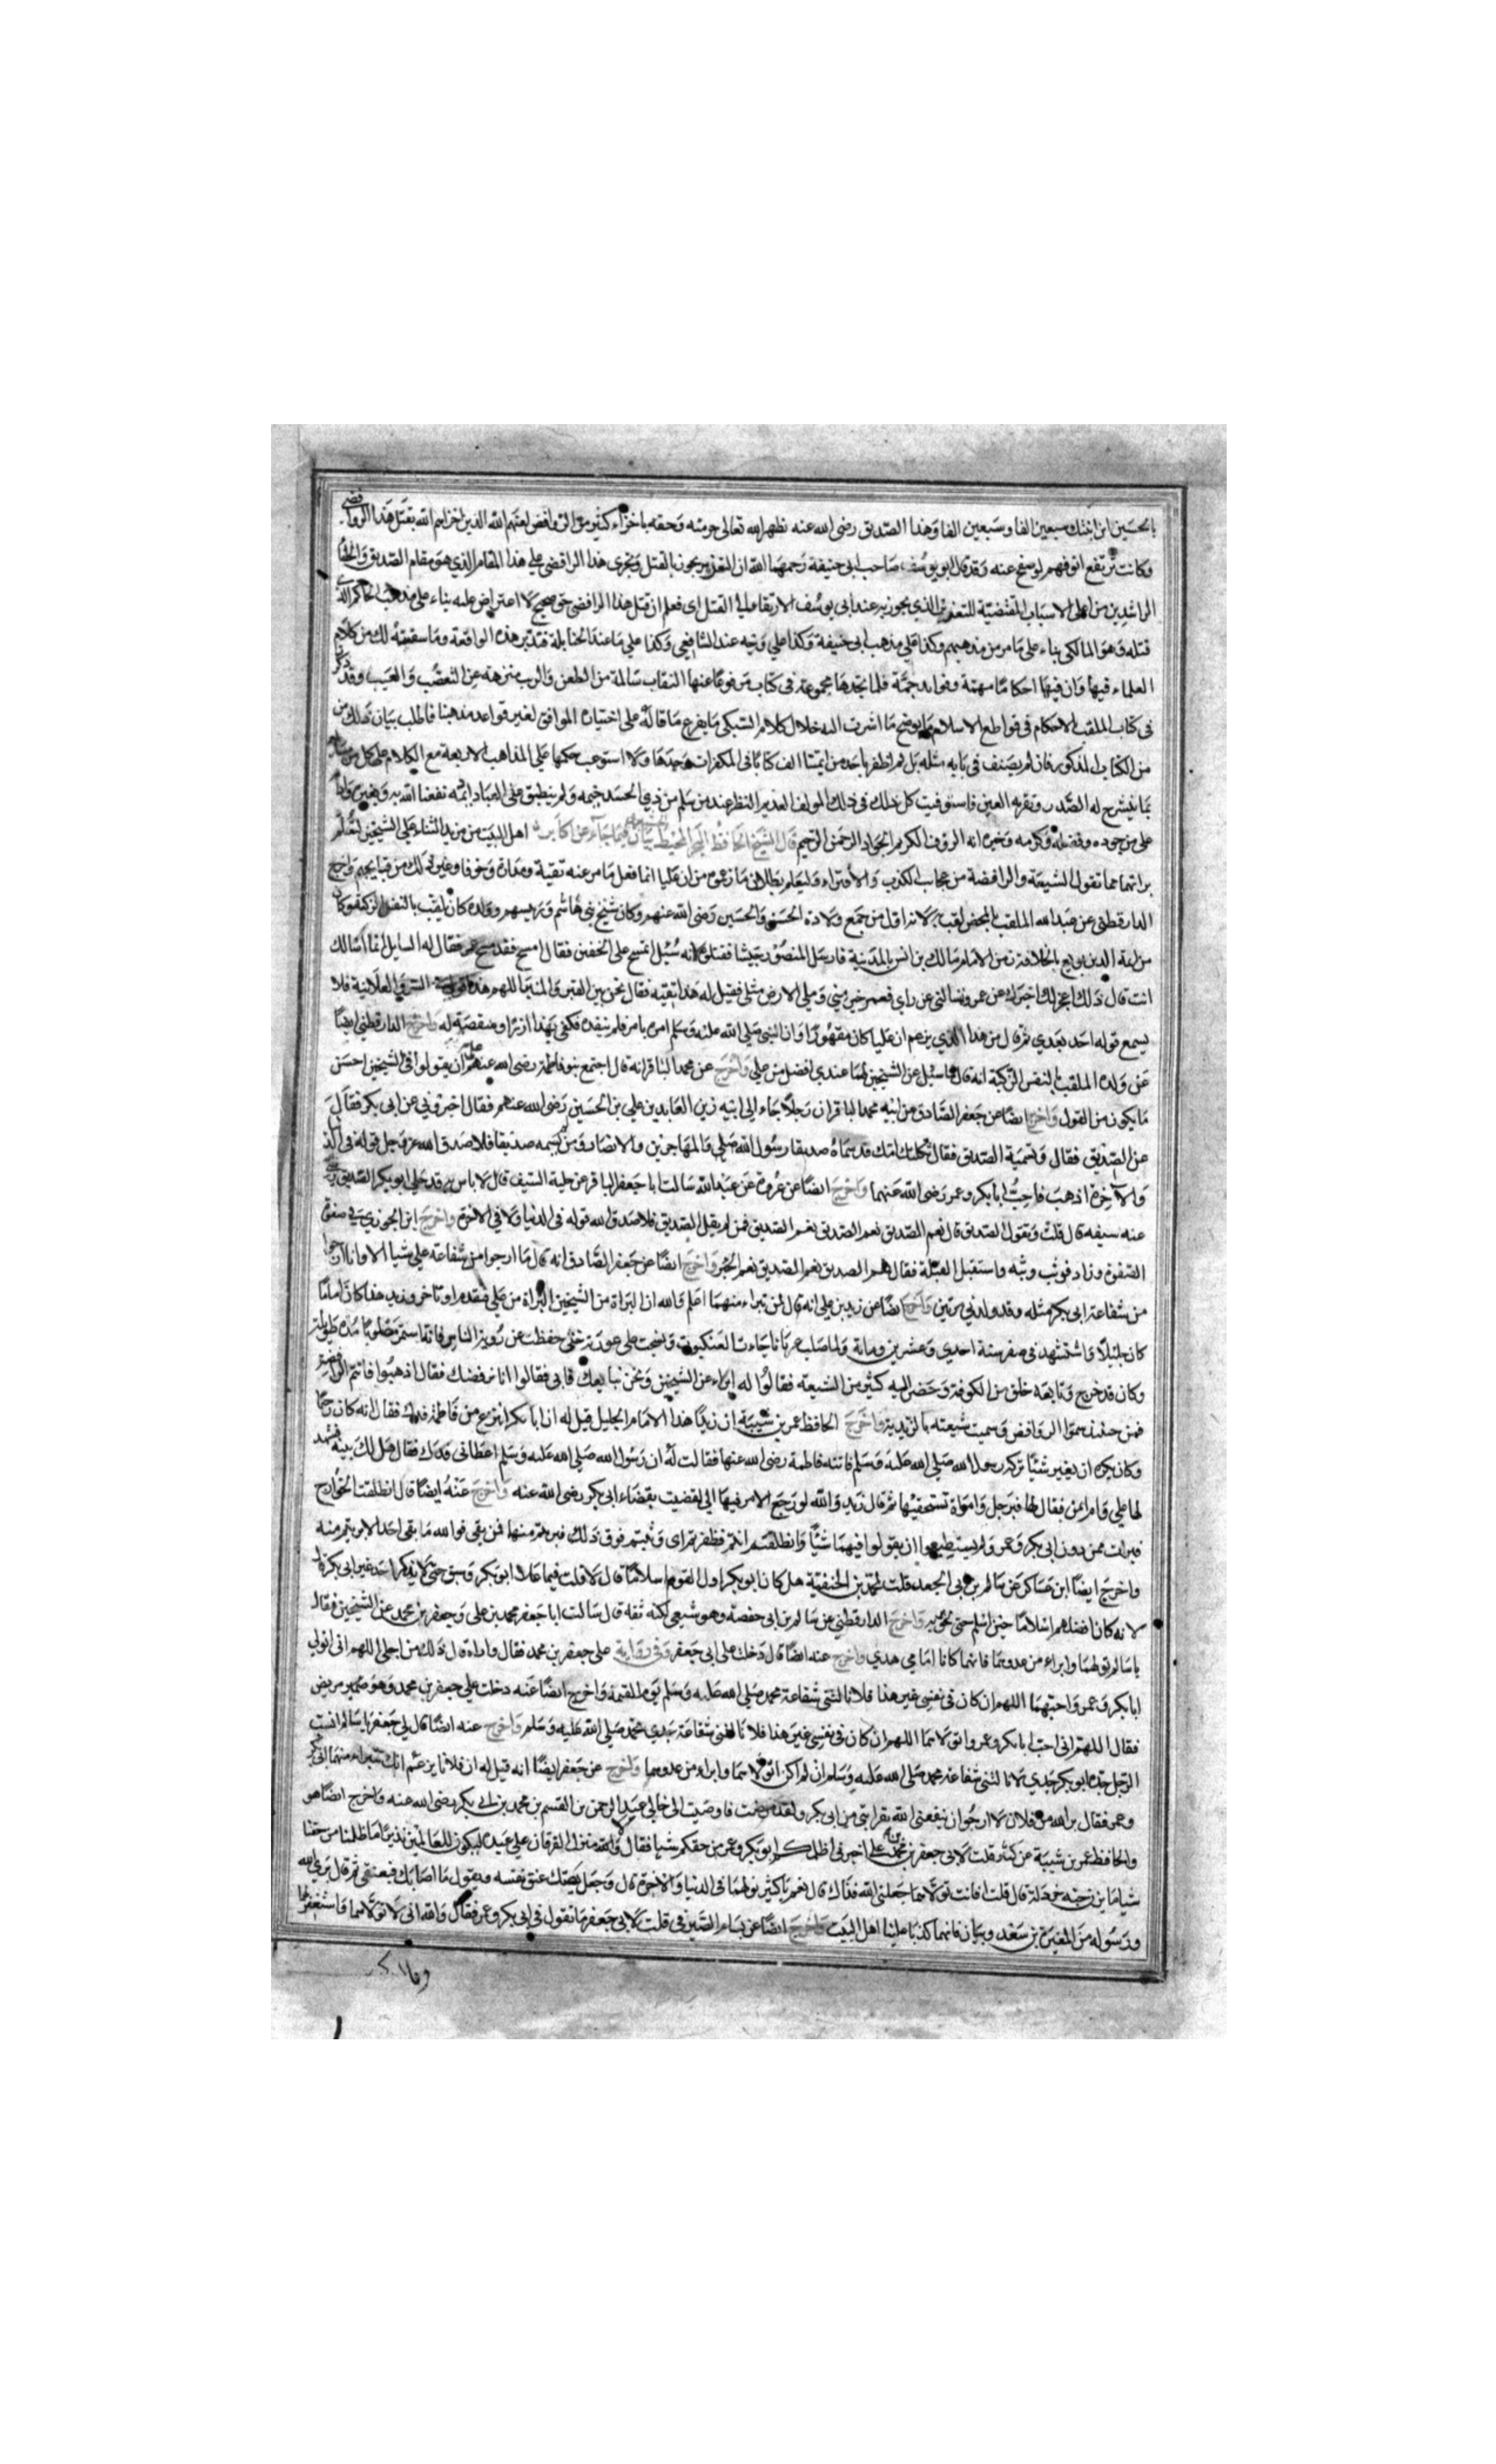 بالحسين ابن ابنتك سبعين الفا وسبعين الفا وهذا الصديق رضى الله عنه نظهر لله تعالى حرمته وحقه باخزاء كثير من الروافض لعنهم الله الذين اخزاهم الله بقتل هذا الرافضى
وكانت ترتفع انوفهم لو صفح عنه وقد قال ابو يوسف صاحب ابى حنيفة رحمهما الله ان التعزير يجوز بالقتل وتجرى هذا الرافضى على هذا المقام الذي هو مقام الصديق والخلفا
الراشدين من اعلى الاسباب المقتضية للتعزير الذي يجوز به عند ابى يوسف الارتقا الى القتل اى فعلم ان قتل هذا الرافضى حق صحيح لا اعتراض عليه بناء على مذهب الحاكم الذى
قتله وهو المالكى بناء على ما مر من مذهبهم وكذا على مذهب ابى حنيفة وكذا على وجه عند الشافعي وكذا على ما عند الحنابلة فتدبر هذه الواقعة وما سقته لك من كلام
العلماء فيها وان فيها احكاما مهمة وفوايد جمة قلما تجدها مجموعة فى كتاب مرفوعا عنها النقاب سالمة من الطعن والريب منزهة عن التعصب والعيب وقد ذكرت
فى كتاب الملقب بالاعلام فى قواطع الاسلام ما يوضح ما اشرت اليه خلال كلام السبكى ما يفرع ما قاله على اختيارة الموافق لغير قواعد مذهبنا فاطلب بيان ذلك من
من الكتاب المذكور فانه لم يصنف فى بابه مثله بل لم اظفر باحد من ايمتنا الف كتابا فى المكفرات وحدها ولا استوعب حكمها على المذاهب الاربعة مع الكلام على كل من مسايله
بما ينشرح له الصدر وتقر به العين فاستوفيت كل ذلك فى ذلك المولف العديم النظير عند من سلم من ذي الحسد نفعنا الله به وبغيره وادام
على من جوده وفضله وكرمه وخيره انه الرؤف الكريم الجواد الرحمن الرحيم قال الشيخ الحافظ البحر المحيط بيان فيما جاء عن اكابر اهل البيت من مزيد الثناء على الشيخين ليعلم
براتهما مما تقول الشيعة والرافضة من عجاب الكذب والافتراء وليعلم بطلان ما زعموه من ان عليا انما فعل ما مر عنه تقية ومداراة وخوفا وغير ذلك من قبايحهم واخرج
الدارقطنى عن عبد الله الملقب بالمحض لقب به لانه اول من جمع ولادة الحسن والحسين رضى الله عنهم وكان شيخ بنى هاشم ورييسهم وولده كان يلقب بالنفس الزكية وكان
من ايمة الدين بويع بالخلافة زمن الامام مالك بن انس بالمدينة فارسل المنصور جيشا فقتلوه انه سئل اتمسح على الخفين فقال امسح فقد مسح عمر فقال له السايل انما اسالك
انت قال ذلك اعجز لك اخبرك عن عمر وتسالنى عن راي فعمر خير مني وملئ الارض مثلى فقيل له هذا تقيه فقال نحن بين القبر والمنبر اللهم هذا قولى فى السر والعلانية فلا
يسمع قوله احد بعدي ثم قال من هذا الذي يزعم ان عليا كان مقهورا وان النبي صلي الله عليه وسلم امره بامر فلم ينفده فكفى بهذا ازراء ومنقصة له واخرج الدارقطني ايضا
عن ولده الملقب بالنفس الزكية انه قال لما سئل عن الشيخين لهما عندي افضل من علي واخرج عن محمد الباقر انه قال اجتمع بنو فاطمة رضى الله عنهم على ان يقولوا فى الشيخين احسن
ما يكون من القول واخرج ايضا عن جعفر الصادق عن ابيه محمد الباقر ان رجلا جاء الي ابيه زين العابدين علي بن الحسين رضى الله عنهم فقال اخبرني عن ابى بكر فقال
عن الصديق فقال وتسميه الصديق فقال ثكلتك امك قد سماه صديقا رسول الله صلى والمهاجرين والانصار ومن لم يسمه صديقا فلا صدق الله عز وجل قوله فى الدنيا
والاخرة اذهب فاحب ابا بكر وعمر رضى الله عنهما واخرج ايضا عن عروة عن عبد الله سالت ابا جعفر الباقر عن حلية السيف قال لا باس به قد حلى ابو بكر الصديق رضى
عنه سيفه قال قلت وتقول الصديق قال نعم الصديق نعم الصديق نعم الصديق فمن لم يقل الصديق فلا صدق الله قوله فى الدنيا ولا في الاخرة واخرج ابن الجوزي فى صفوة
الصفوة وزاد فوثب وثبة واستقبل القبلة فقال نعم الصديق نعم الصديق نعم الخبر واخرج ايضا عن جعفر الصادق انه قال ما ارجوا من شفاعة علي شيا الا وانا ارجوا
من شفاعة ابى بكر مثله وقد ولدني مرتين واخرج ايضا عن زيد بن علي انه قال لمن تبراء منهما اعلم والله ان البراة من الشيخين البراة من علي فتقدم او تاخر وزيد هذا كان اماما
كان جليلا واستشهد فى صفر سنة احدي وعشرين وماية ولما صلب عريانا جاءت العنكبوت ونسجت على عورته حتى حفظت عن روية الناس فانه استمر مصلوبا مدة طويلة
وكان قد خرج وتابعه خلق من الكوفة وحضر اليه كثير من الشيعة فقالوا له ابراء عن الشيخين ونحن نبايعك فابى فقالوا انا نرفضك فقال اذهبوا فانتم الرافضة
فمن حينئذ سموا الروافض وسميت شيعته بالزيدية واخرج الحافظ عمر بن شيبة ان زيدا هذا الامام الجليل قيل له ان ابا بكر انتزع من فاطمة فدك فقال انه كان رحيما
وكان يكره ان يغير شيئا تركه رسول الله صلي الله عليه وسلم فاتته فاطمة رضى الله عنها فقالت له ان رسول الله صلي الله عليه وسلم اعطانى فدك فقال هل لك بينة فشهد
لها علي وام ايمن فقال لها فبرجل وامراة تستحقيها ثم قال زيد والله لو رجع الامر فيها الي لقضيت بقضاء ابى بكر رضى الله عنه واخرج عنه ايضا قال انطلقت الخوارج
فبرات ممن دون ابى بكر وعمر ولم يستطيعوا ان يقولوا فيهما شيئا وانطلقتم انتم فظفرتم اى وثبتم فوق ذلك فبرئتم منهما فمن بقى فوالله ما بقى احد الا برئتم منه
واخرج ايضا ابن عساكر عن سالم بن ابى الجعد قلت لمحمد بن الحنفية هل كان ابو بكر اول القوم اسلاما قال لا قلت فيما علا ابو بكر وسبق حتى لا يذكر احد غير ابى بكر قال
لانه كان افضلهم اسلاما حين اسلم حتى لحق بربه واخرج الدارقطني عن سالم بن ابى حفصة وهو شيعي لكنه ثقة قال سالت ابا جعفر محمد بن على وجعفر بن محمد عن الشيخين فقالا
يا سالم تولهما وابراء من عدوهما فانهما كانا امامي هدي واخرج عنه ايضا قال دخلت على ابى جعفر وفى رواية على جعفر بن محمد فقال واراه قال ذلك من اجلى اللهم انى اتولى
ابا بكر وعمر واحبهما اللهم ان كان فى نفسي غير هذا فلا نالتنى شفاعة محمد صلي الله عليه وسلم يوم القيمة واخرج ايضا عنه دخلت علي جعفر بن محمد وهو مريض
فقال اللهم انى احب ابا بكر وعمر واتولاهما اللهم ان كان فى نفسي غير هذا فلا نالتنى شفاعة جدي محمد صلي الله عليه وسلم واخرج عنه ايضا قال لي جعفر يا سالم ايسب
الرجل جده ابو بكر جدي لا نالتنى شفاعة محمد صلي الله عليه وسلم ان لم اكن اتولاهما وابراء من عدوهما واخرج عن جعفر ايضا انه قيل له ان فلانا يزعم انك تتبراء منهما ابى بكر
وعمر فقال برئ الله من فلان لارجوا ان ينفعنى الله بقرابتى من ابى بكر ولقد مرضت فاوصيت الى خالي عبد الرحمن بن القسم بن محمد بن ابى بكر رضى الله عنه واخرج ايضا هو
والحافظ عمر بن شيبة عن كثير قلت لابى جعفر بن محمد بن على اخبرنى اظلمكم ابو بكر وعمر من حقكم شيا فقال والله منزل الفرقان علي عبده ليكون للعالمين نذيرا ما ظلمنا من حقنا
شيا ما يزن حبة خردلة قال قلت افانت تتولاهما جعلنى الله فداك قال نعم يا كثير تولهما فى الدنيا والاخرة قال وجعل يصك عنق نفسه ويقول ما اصابك فبعنقى ثم قال برئ الله
ورسوله من المغيرة بن سعد وبيان فانهما كذبا علينا اهل البيت واخرج ايضا عن بسام الصيرفى قلت لابى جعفر ما تقول فى ابى بكر وعمر فقال والله انى لاتولاهما واستغفر لهما
وما ادركت